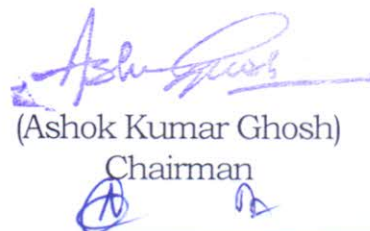 Ashok Ghosh
(Ashok Kumar Ghosh)
Chairman